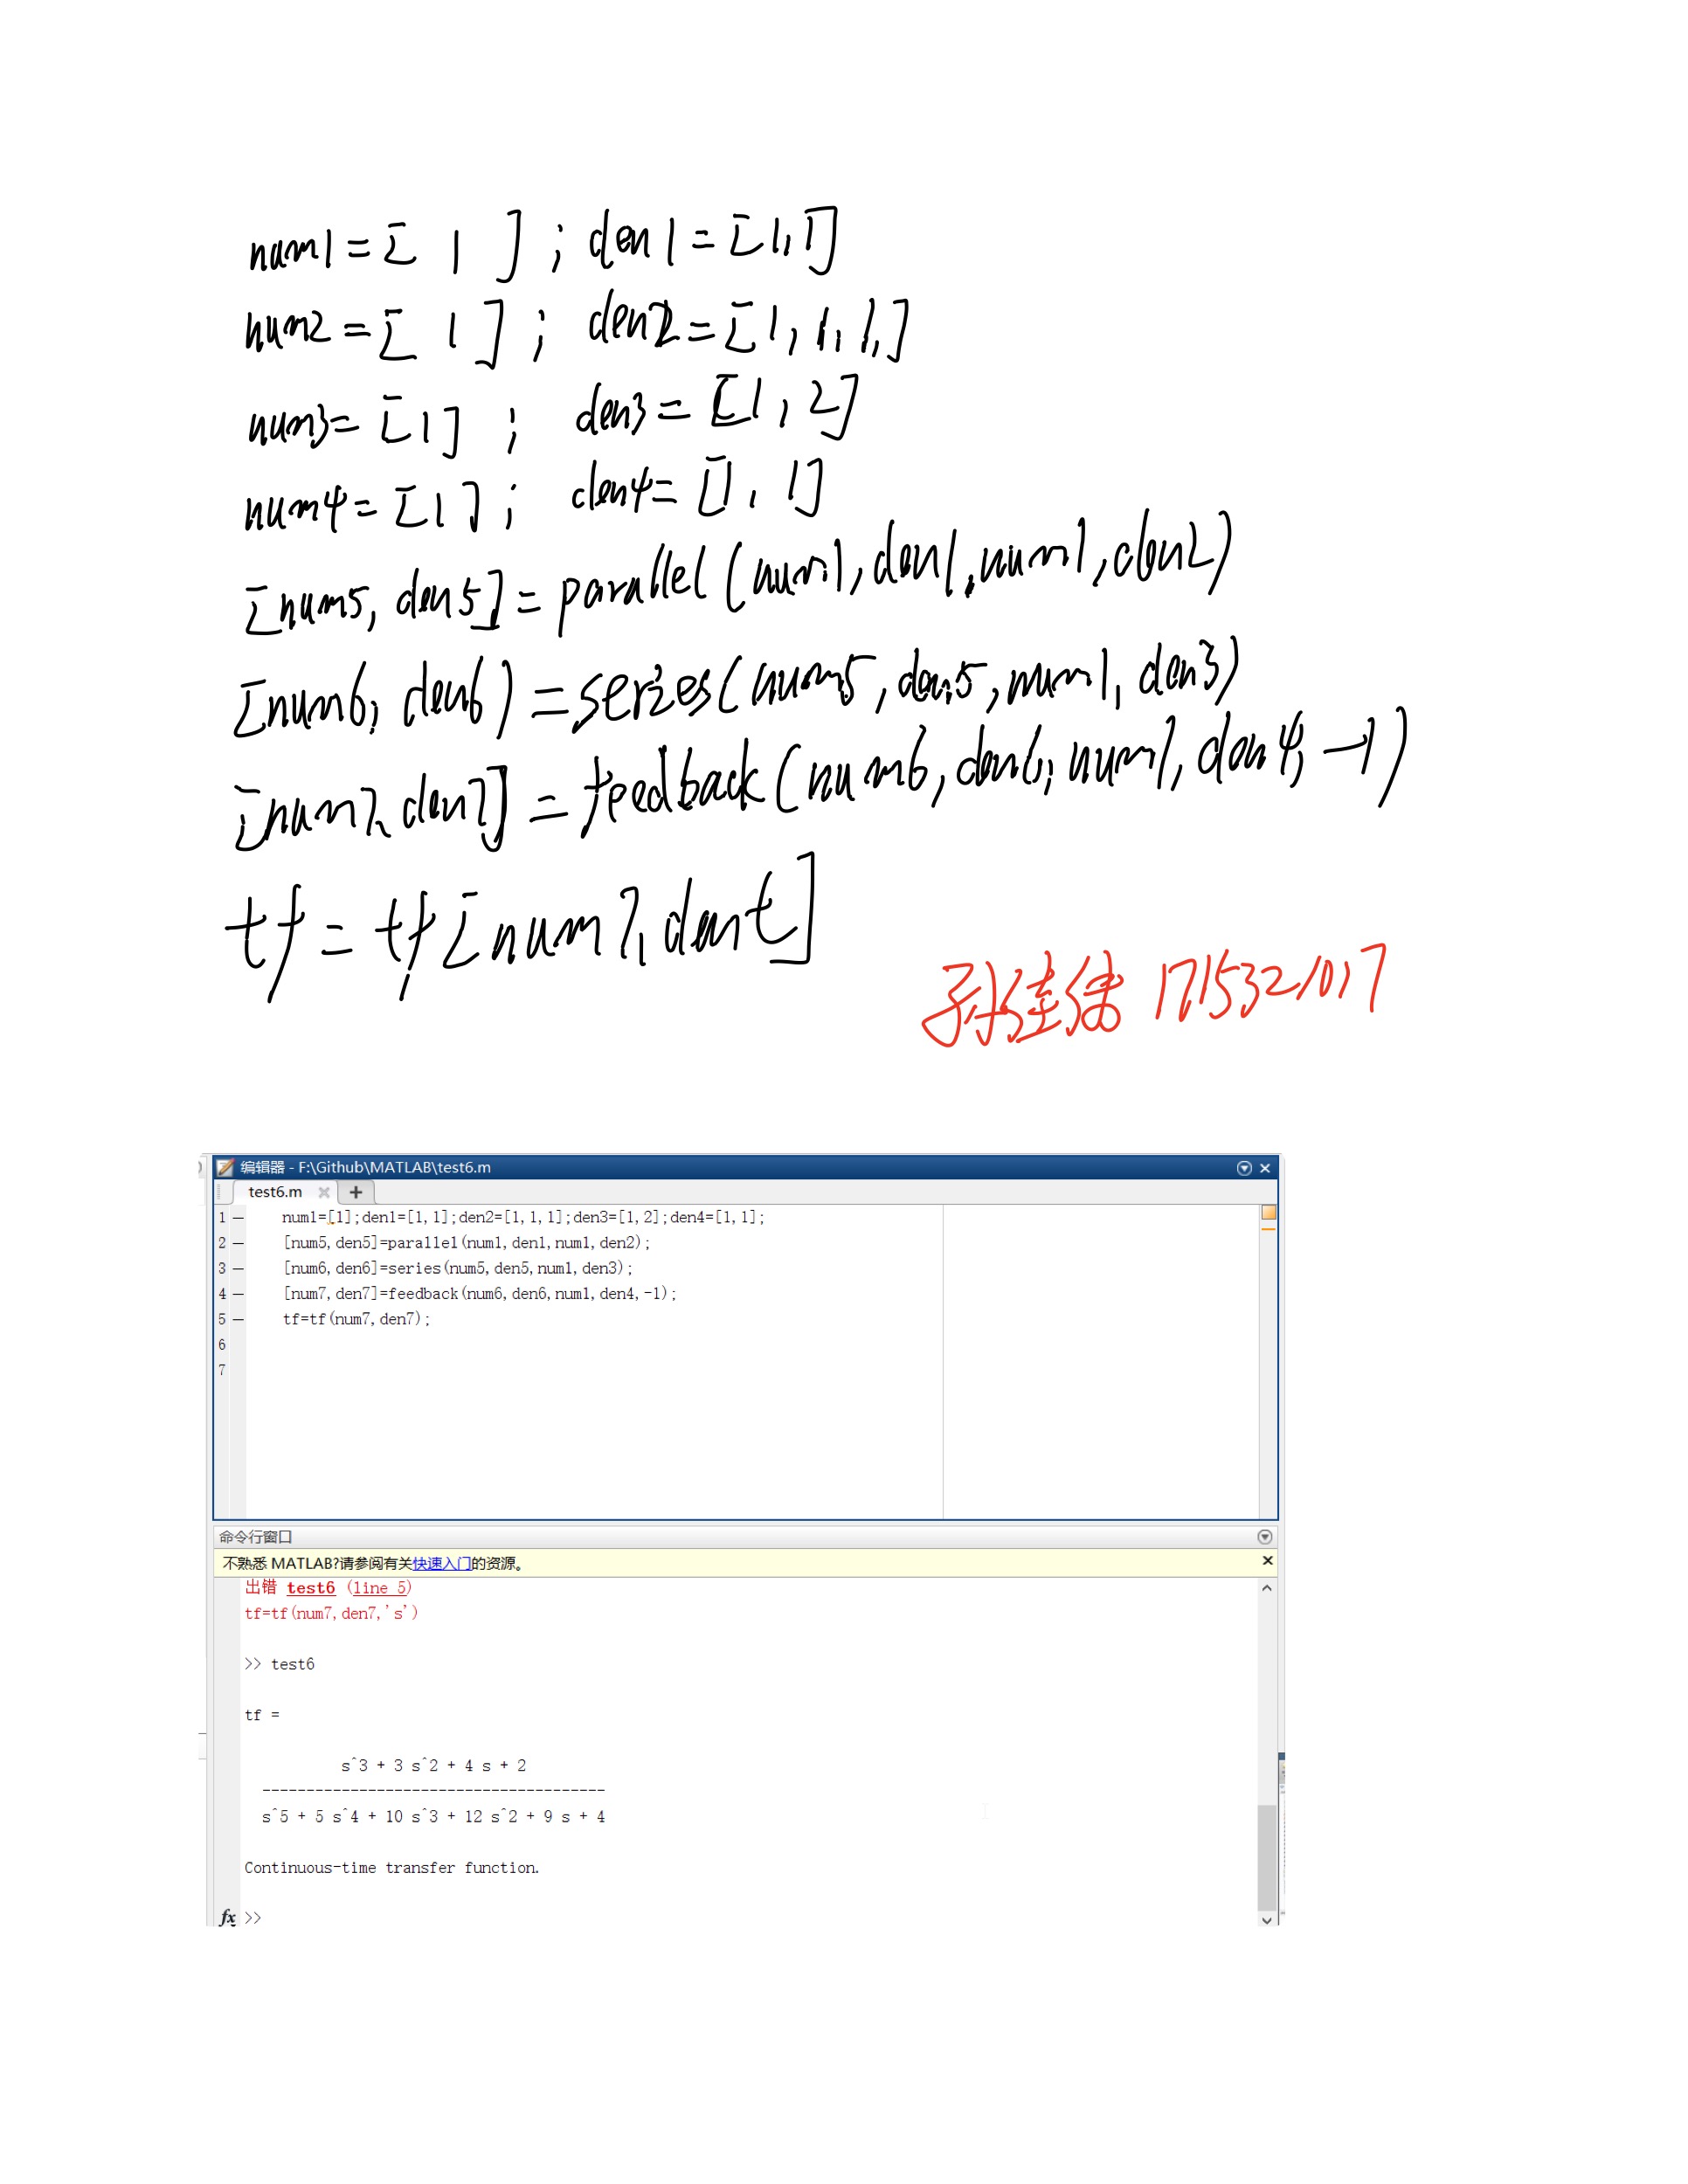 num1=[ 1 ] ; den1=[1,1]
num2=[ 1 ] ; den2=[1,1,1,]
num3=[1] ; den3=[1,2]
num4=[1] ; den4=[1,1]
[num5, den5]=parallel(num1,den1,num1,den2)
[num6, den6)=series(num5,den5,num1,den3)
[num7,den7]=feedback(num6,den6,num1,den4,-1)
tf=tf[num7,dent]
1715321017
编辑器 - F:\Github\MATLAB\test6.m
test6.m × +
1 — num1=[1];den1=[1,1];den2=[1,1,1];den3=[1,2];den4=[1,1];
2 — [num5,den5]=parallel(num1,den1,num1,den2);
3 — [num6,den6]=series(num5,den5,num1,den3);
4 — [num7,den7]=feedback(num6,den6,num1,den4,-1);
5 — tf=tf(num7,den7);
6
7
命令行窗口
不熟悉 MATLAB?请参阅有关快速入门的资源。
出错 test6 (line 5)
tf=tf(num7,den7,'s')
>> test6
tf =
s^3 + 3 s^2 + 4 s + 2
---------------------------------------
s^5 + 5 s^4 + 10 s^3 + 12 s^2 + 9 s + 4
Continuous-time transfer function.
fx >>